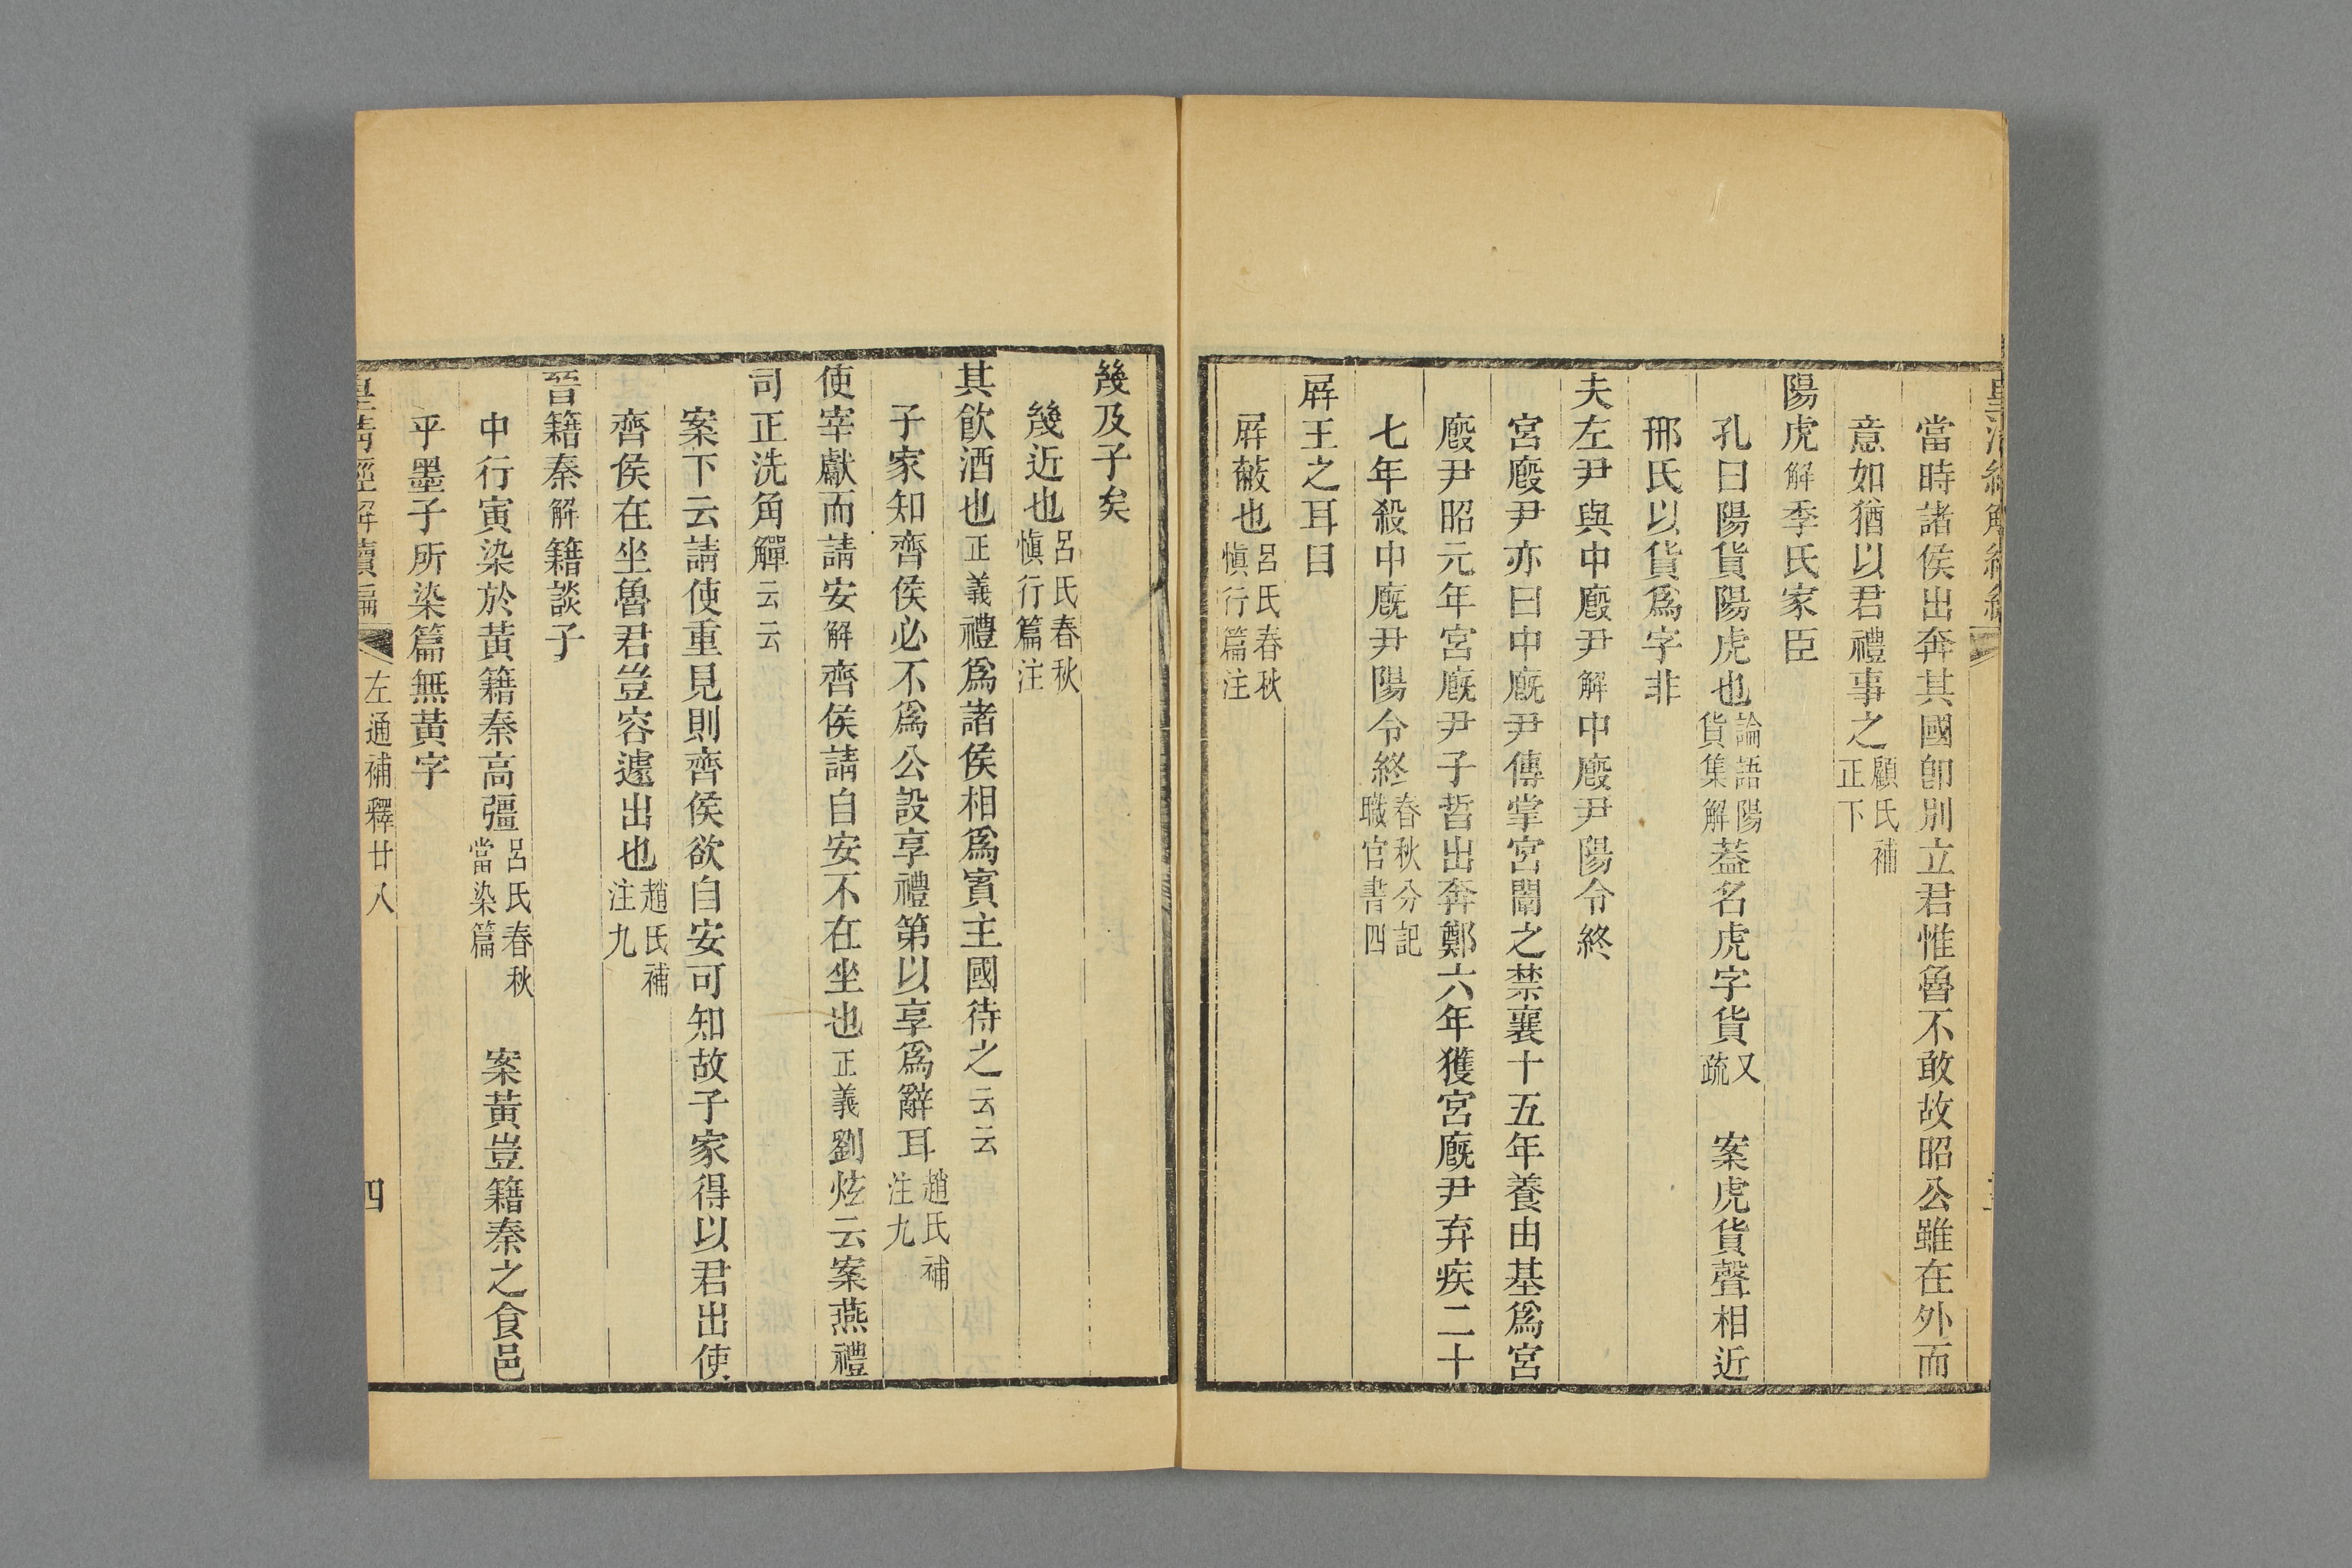 當時諸侯出奔其國卽別立君惟魯不敢故昭公雖在外而
意如猶以君禮事之顧氏補正下
陽虎解季氏家臣
孔曰陽貨陽虎也論語陽貨集解葢名虎字貨又疏 案虎貨聲相近
邢氏以貨爲字非
夫左尹與中廏尹解中廏尹陽令終
宮廏尹亦曰中廐尹傳掌宮閽之禁襄十五年養由基爲宮
廏尹昭元年宮廐尹子晳出奔鄭六年獲宮廐尹弃疾二十
七年殺中廐尹陽令終春秋分記職官書四
屛王之耳目
屛蔽也呂氏春秋愼行篇注
幾及子矣
幾近也呂氏春秋愼行篇注
其飮酒也正義禮爲諸侯相爲賓主國待之云云
子家知齊侯必不爲公設享禮第以享爲辭耳趙氏補注九
使宰獻而請安解齊侯請自安不在坐也正義劉炫云案燕禮
司正洗角觶云云
案下云請使重見則齊侯欲自安可知故子家得以君出使
齊侯在坐魯君豈容遽出也趙氏補注九
晉籍秦解籍談子
中行寅染於黃籍秦高彊呂氏春秋當染篇 案黃豈籍秦之食邑
乎墨子所染篇無黃字
皇淸經解續編 左通補釋廿八 四